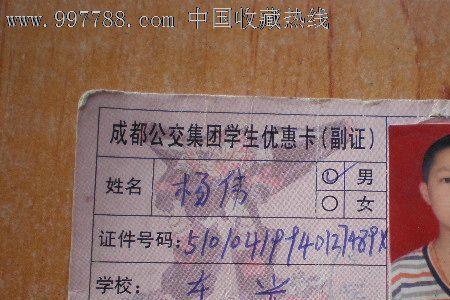 www.997788.com 中国收藏热线
成都公交集团学生优惠卡(副证)
姓名 杨伟 男
女
证件号码:
学校: